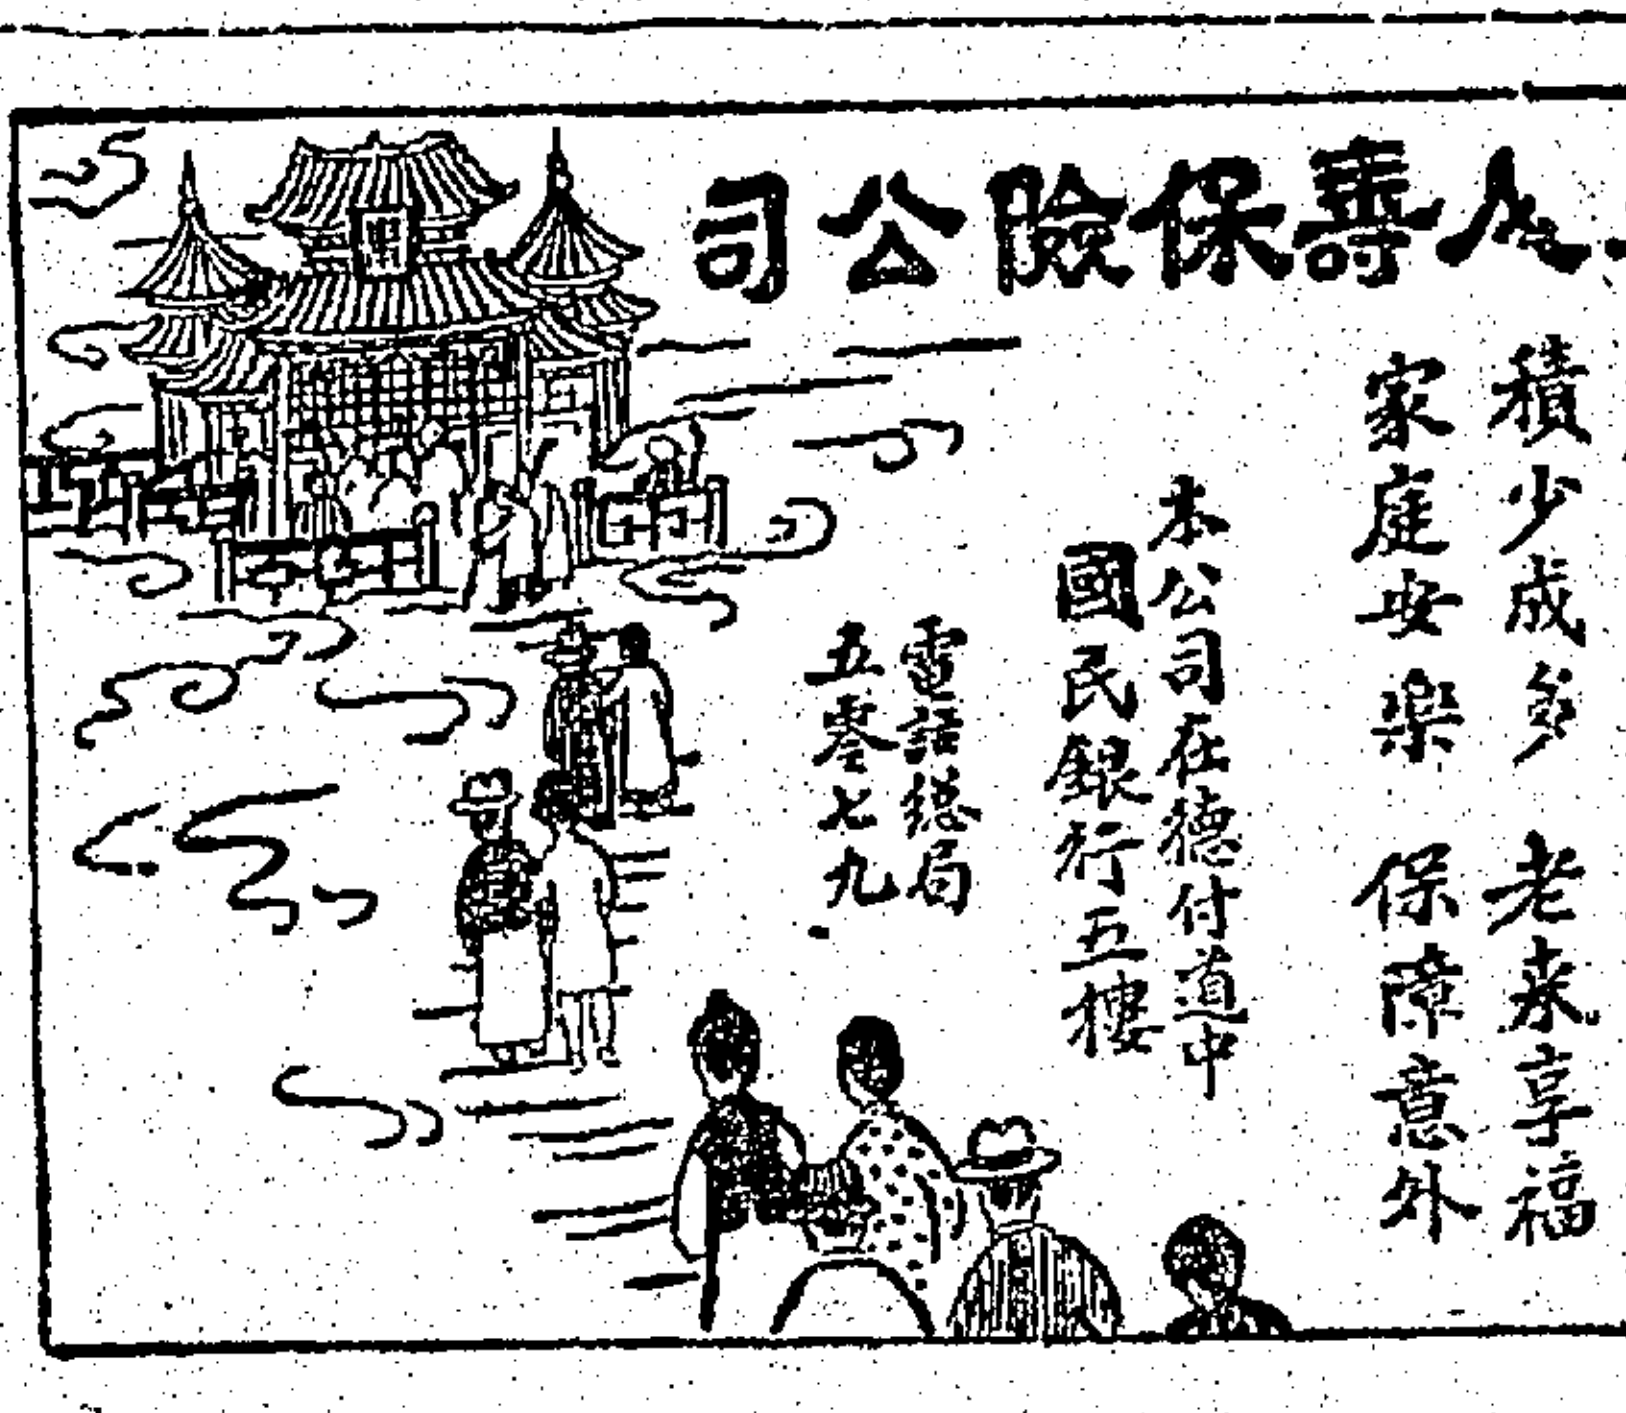 人壽保險公司
積少成多 老来享福
家庭安樂 保障意外
本公司在德付道中
國民銀行五樓
電話總局
五零七九